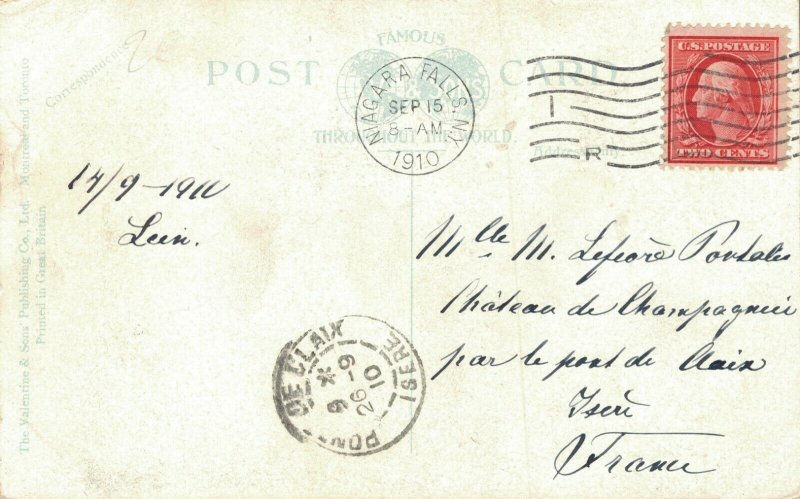 FAMOUS
POST CARD
THROUGHOUT THE WORLD.
Correspondence
Address Only
The Valentine & Sons' Publishing Co., Ltd. Montreal and Toronto
Printed in Great Britain
NIAGARA FALLS, N.Y.
SEP 15
8 - AM
1910
I
R
U.S. POSTAGE
TWO CENTS
14/9 - 1910
Mlle M. Lefebre Portalis
Château de Champagnier
par le pont de Claix
Isère
France
PONT DE CLAIX
ISERE
26 - 9
10